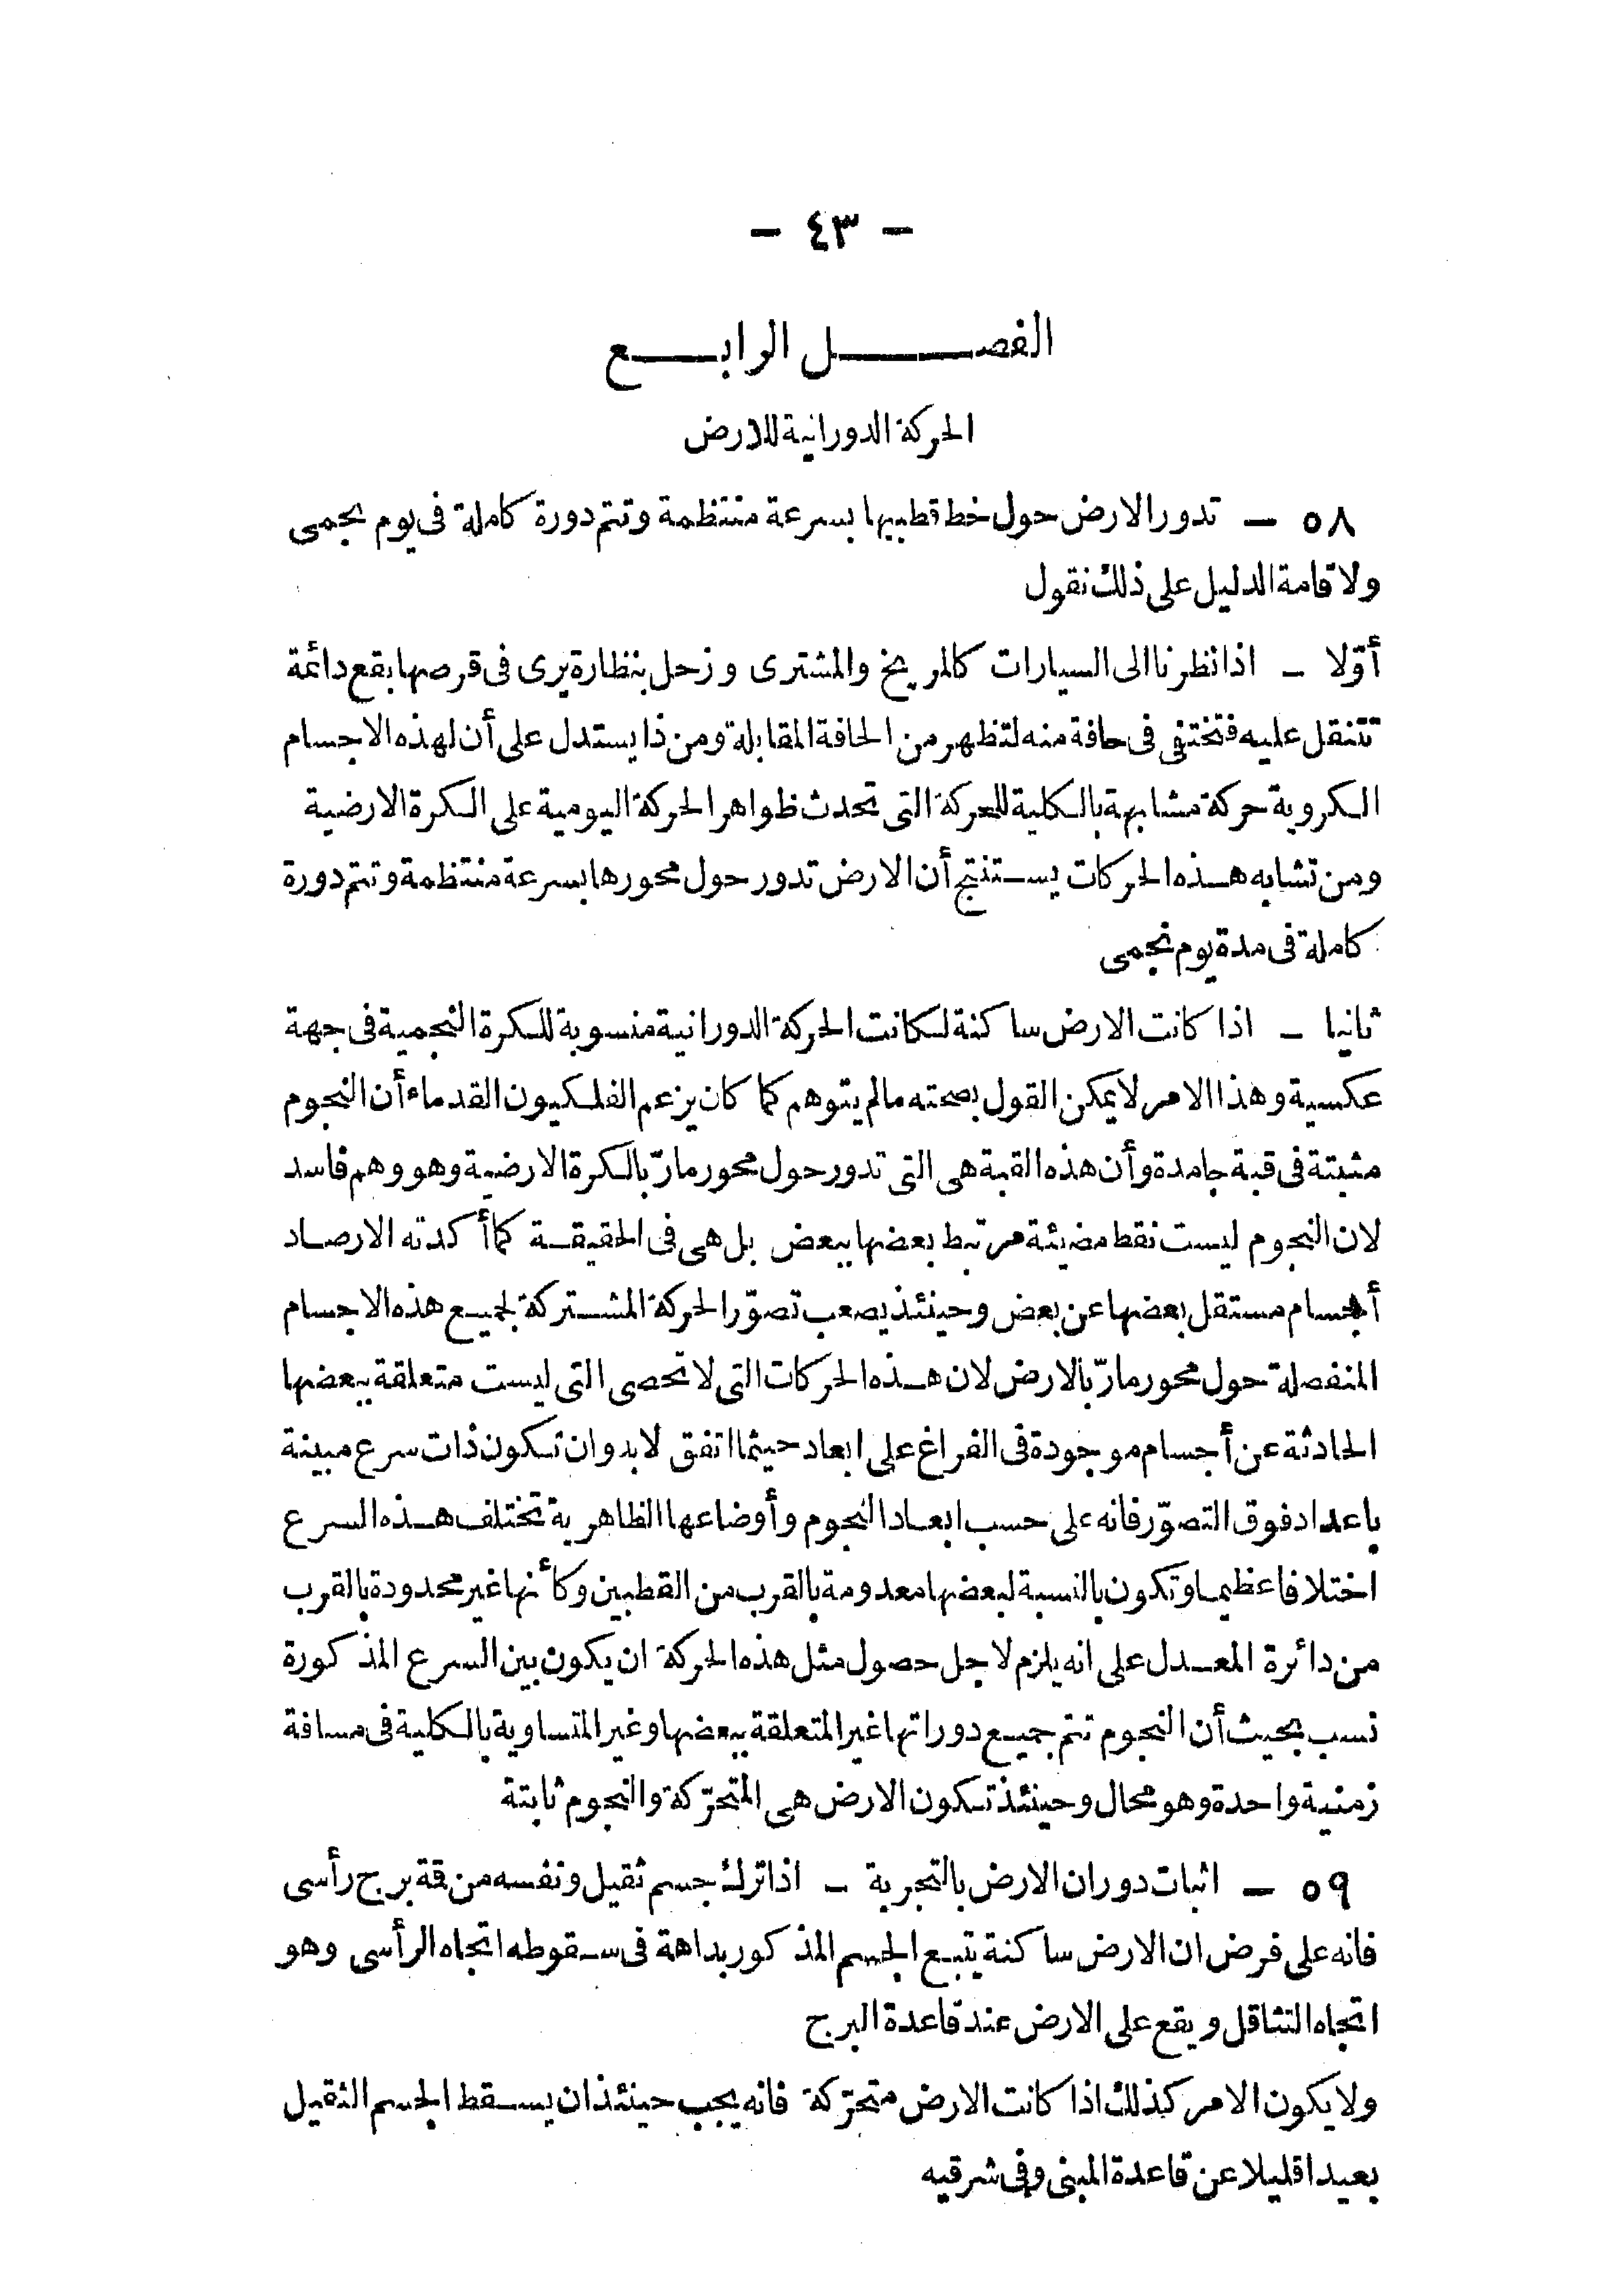 - ٤٣ -
الفصل الرابع
الحركة الدورانية للارض
٥٨ - تدور الارض حول خط قطبيها بسرعة منتظمة وتتم دورة كاملة فى يوم نجمى
ولاقامة الدليل على ذلك نقول
أوّلا - اذا نظرنا الى السيارات كالمريخ والمشترى وزحل بنظارة يرى فى قرصها بقع دائمة
تتنقل عليه فتختفى فى حافة منه لتظهر من الحافة المقابلة ومن ذا يستدل على أن لهذه الاجسام
الكروية حركة مشابهة بالكلية للحركة التى تحدث ظواهر الحركة اليومية على الكرة الارضية
ومن تشابه هذه الحركات يستنتج أن الارض تدور حول محورها بسرعة منتظمة وتتم دورة
كاملة فى مدة يوم نجمى
ثانيا - اذا كانت الارض ساكنة لكانت الحركة الدورانية منسوبة للكرة النجمية فى جهة
عكسية وهذا الامر لا يمكن القول بصحته مالم يتوهم كما كان يزعم الفلكيون القدماء أن النجوم
مثبتة فى قبة جامدة وأن هذه القبة هى التى تدور حول محور مارّ بالكرة الارضية وهو وهم فاسد
لان النجوم ليست نقط مضيئة مرتبط بعضها ببعض بل هى فى الحقيقة كما أكدته الارصاد
أجسام مستقل بعضها عن بعض وحينئذ يصعب تصوّر الحركة المشتركة لجميع هذه الاجسام
المنفصلة حول محور مارّ بالارض لان هذه الحركات التى لا تحصى التى ليست متعلقة ببعضها
الحادثة عن أجسام موجودة فى الفراغ على ابعاد حيثما اتفق لابد وان تكون ذات سرع مبينة
باعداد فوق التصوّر فانه على حسب ابعاد النجوم وأوضاعها الظاهرية تختلف هذه السرع
اختلافا عظيما وتكون بالنسبة لبعضها معدومة بالقرب من القطبين وكأنها غير محدودة بالقرب
من دائرة المعدل على انه يلزم لاجل حصول مثل هذه الحركة ان يكون بين السرع المذكورة
نسب بحيث أن النجوم تتم جميع دوراتها غير المتعلقة ببعضها وغير المتساوية بالكلية فى مسافة
زمنية واحدة وهو محال وحينئذ تكون الارض هى المتحرّكة والنجوم ثابتة
٥٩ - اثبات دوران الارض بالتجربة - اذا ترك جسم ثقيل ونفسه من قمة برج رأسى
فانه على فرض ان الارض ساكنة يتبع الجسم المذكور بداهة فى سقوطه اتجاه الرأسى وهو
اتجاه التثاقل ويقع على الارض عند قاعدة البرج
ولا يكون الامر كذلك اذا كانت الارض متحرّكة فانه يجب حينئذ ان يسقط الجسم الثقيل
بعيدا قليلا عن قاعدة المبنى وفى شرقيه